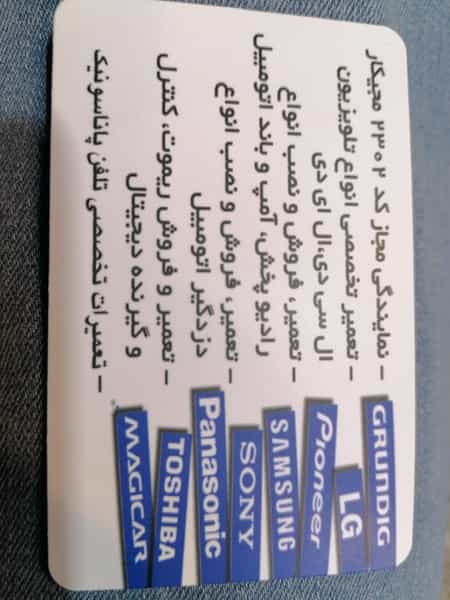 – نمایندگی مجاز کد ۲۳۰۲ مجیکار
– تعمیر تخصصی انواع تلویزیون
ال سی دی،ال ای دی
– تعمیر، فروش و نصب انواع
رادیو پخش، آمپ و باند اتومبیل
– تعمیر، فروش و نصب انواع
دزدگیر اتومبیل
– تعمیر و فروش ریموت، کنترل
و گیرنده دیجیتال
– تعمیرات تخصصی تلفن پاناسونیک
GRUNDIG
LG
Pioneer
SAMSUNG
SONY
Panasonic
TOSHIBA
MAGICAR